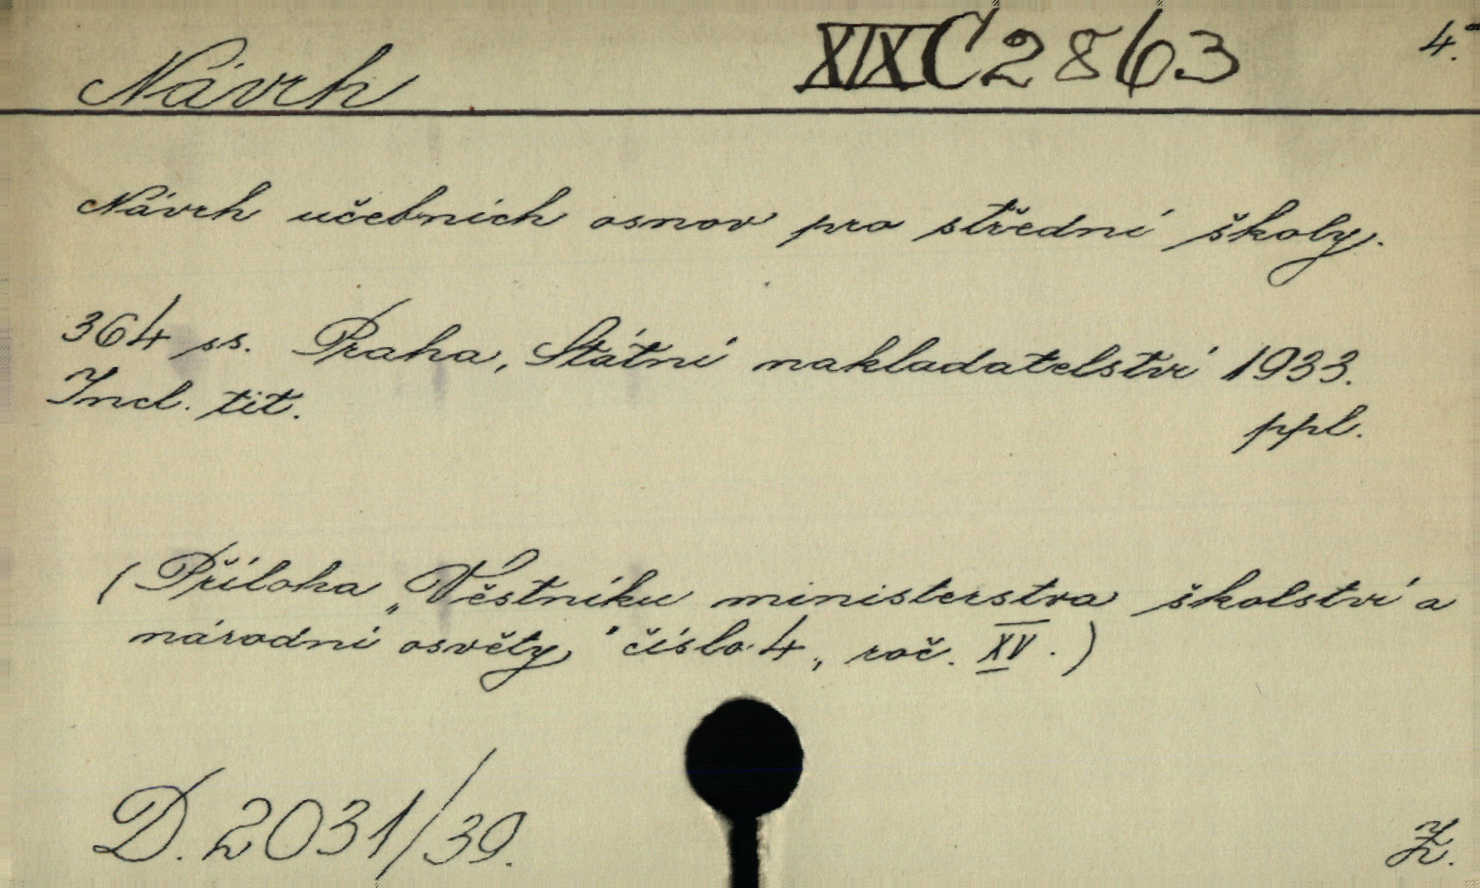 Návrh XIX C 2863 4.°
Návrh učebních osnov pro střední školy.
364 ss. Praha, Státní nakladatelství 1933.
Incl. tit. ppl.
(Příloha „Věstníku ministerstva školství a
národní osvěty" číslo 4., roč. XV.)
D. 2031/39. Ž.